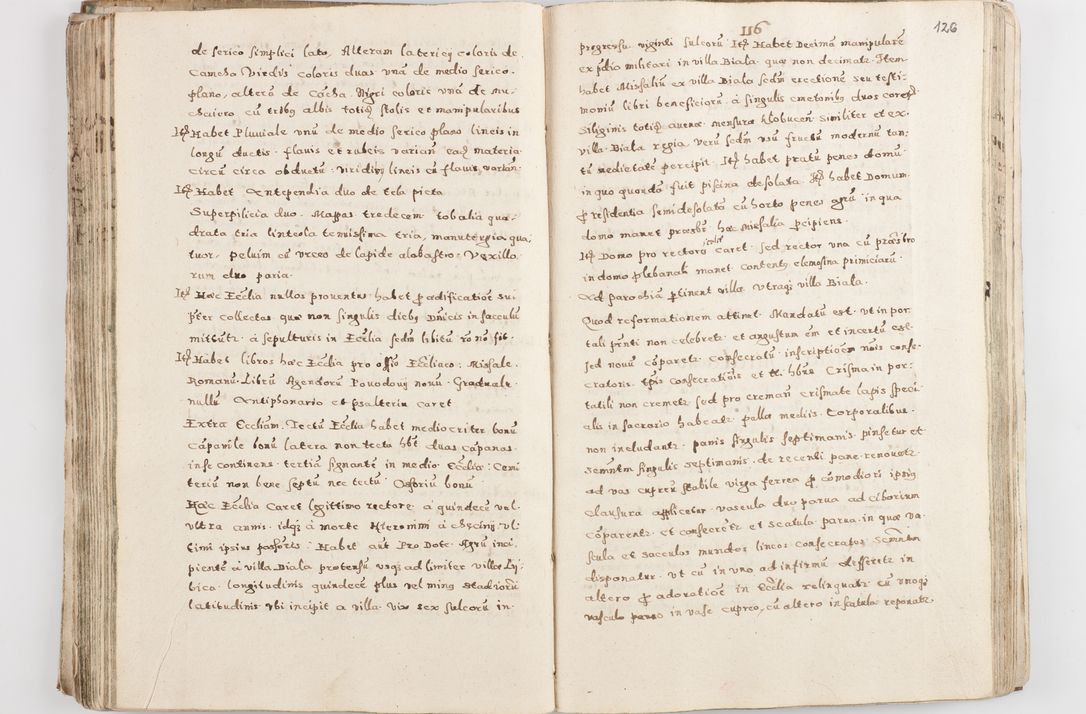 de serico simplici lato, Alteram latericij coloris de
Camcha Viridis coloris duas vnã de medio serico
plano, alterã de Cacha. Nigri coloris vnã de mu-
chaiero cũ tribꝯ albis totiqꝫ stolis et manipularibus
Itẽ Habet Pluuiale vnũ de medio serico plano lineis in
longũ ductis flauis et rubeis varian eaqꝫ materia
circũ circa obductũ viridibꝯ lineis cũ flauis varian
Itẽ Habet Antependia duo de tela picta
Superpilicia duo. Mappas tredecem tobalia qua-
drata tria linteola tenuissima tria, manutergia qua,
tuor. peluim cũ vrceo de lapide alabastro. Vexillo-
rum duo paria.
Itẽ Hæc Ecclia nullos prouentus habet ꝓ ædificatioẽ sui
pter collectas quæ non singulis diebꝯ Dnicis in sacculũ
mittũtr à sepulturis in Ecclia sedm libitũ ro nõ fit.
Itẽ Habet libros hæc Ecclia pro offo Eccliaco: Missale
Romanũ. Librũ Agendorũ Pouodouẏ nouũ. Graduale
nullũ Antiphonario et psalteriũ caret
Extra Eccliam. Tectũ Ecclia habet mediocriter bonũ
Cãpanile bonũ latera non tecta hbt duas cãpanas
inse continens. tertiã signantẽ in medio Eccliæ. Cemi
teriũ non bene septũ nec tectũ Ossoriũ bonũ
Hæc Ecclia Caret legittimo rectore à quindece vel
vltra annis. idqꝫ à morte Hieronimi à vl-
timi ipsius possoris. Habet aut Pro Dote. Agrũ inci,
pientẽ à villa Biala protensũ vsqꝫ ad limites villæ Ly,
bica. longitudinis quindecẽ plus vel minꝯ stadiorũ
latitudinis vbi incipit a villa via sex sulcorũ in-
116
126
progressu viginti sulcorũ Itẽ Habet Decimã manipularẽ
ex pdio militari in villa Biala quæ non decimatr. Item
habet Missaliũ ex villa Biala sedm erectionẽ seu testi-
moniũ libri beneficiorũ à singulis cmetonibꝯ duos coreꝫ
siliginis totiqꝫ auenæ mensuræ klobucen similiter et ex
villa Biala regia, verũ sedm vsũ fructũ modernũ tan:
tũ medietatẽ percipit Itẽ habet pratũ penes domũ
in quo quondã fuit piscina desolata Itẽ habet Domum
ꝓ residentia semidesolatã cũ horto penes agrũ in qua
domo manet presbr hæc missalia pcipiens.
Itẽ Domo pro rectore scolæ caret. sed rector vna cũ præsbro
in domo plebanali manet contentꝯ elemosina primiciarũ
Ad parochiã ꝑtinent villæ vtraqꝫ villa Biala.
Quod reformationem attinet. Mandatũ est. vt in por
tali pnti non celebretr et angustum em et incertũ est.
sed nouũ cõparetr consecratũ inscriptioẽm nois conse-
cratoris. tpis consecratiõis et tt. hbns Crisma in por-
tatili non cremetr sed pro cremañ crismate lapis speci
alis in sacrario habeatr pallæ medijs Corporalibus
non includantr panis singulis septimanis pinsetur et
semntm singulis septimanis. de recenti pane renouatr
ad vas cupreũ stabile virga ferrea ꝓ cõmodiori ipsius
clausura applicetur. vascula duo parua ad ciborium
cõparentr. et consecretr et scatula parua in qua va-
scula et sacculos mundos lineos consecratos semntm
disponatur. vt cũ in vno ad infirmũ desseretr in
altero ꝓ adoratioẽ in Ecclia relinquatr cũ vnoqꝫ
vasculo paruo in vase cupreo, cũ altero in scatula reponatr,